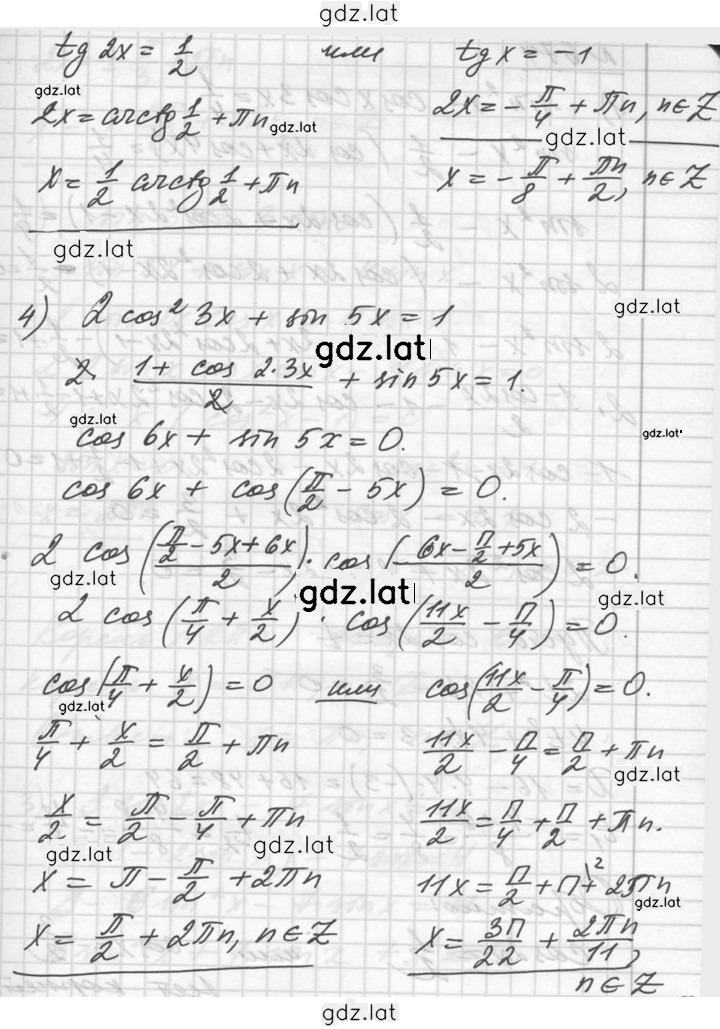 gdz.lat
tg 2x = 1/2 или tg x = -1
gdz.lat
2x = arctg 1/2 + πn 2x = -π/4 + πn, n∈Z
gdz.lat
gdz.lat
x = 1/2 arctg 1/2 + πn x = -π/8 + πn/2, n∈Z
gdz.lat
4) 2 cos² 3x + sin 5x = 1
gdz.lat
gdz.lat
2 · (1 + cos 2·3x)/2 + sin 5x = 1.
gdz.lat
cos 6x + sin 5x = 0.
gdz.lat
cos 6x + cos(π/2 - 5x) = 0.
2 cos((π/2 - 5x + 6x)/2) · cos((6x - π/2 + 5x)/2) = 0.
gdz.lat
gdz.lat
gdz.lat
2 cos(π/4 + x/2) · cos(11x/2 - π/4) = 0.
cos(π/4 + x/2) = 0 или cos(11x/2 - π/4) = 0.
gdz.lat
π/4 + x/2 = π/2 + πn 11x/2 - π/4 = π/2 + πn
gdz.lat
x/2 = π/2 - π/4 + πn 11x/2 = π/4 + π/2 + πn.
gdz.lat
gdz.lat
x = π - π/2 + 2πn 11x = π/2 + π + 2πn
gdz.lat
x = π/2 + 2πn, n∈Z x = 3π/22 + 2πn/11,
n∈Z
gdz.lat